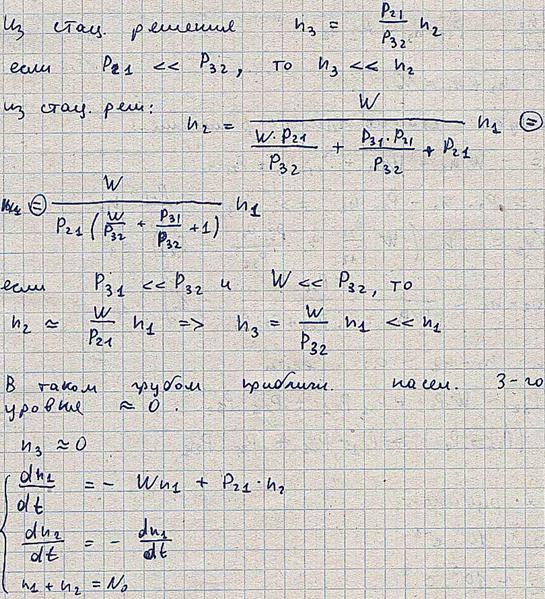 Из стац. решения n₃ = P₂₁/P₃₂ n₂
если P₂₁ << P₃₂, то n₃ << n₂
из стац. реш:
n₂ = W / (W·P₂₁/P₃₂ + P₃₁·P₂₁/P₃₂ + P₂₁) n₁ =
= W / (P₂₁ (W/P₃₂ + P₃₁/P₃₂ + 1)) n₁
если P₃₁ << P₃₂ и W << P₃₂, то
n₂ ≈ W/P₂₁ n₁ => n₃ = W/P₃₂ n₁ << n₁
В таком грубом приближ. насел. 3-го
уровня ≈ 0.
n₃ ≈ 0
dn₁/dt = - Wn₁ + P₂₁·n₂
dn₂/dt = - dn₁/dt
n₁ + n₂ = N₀